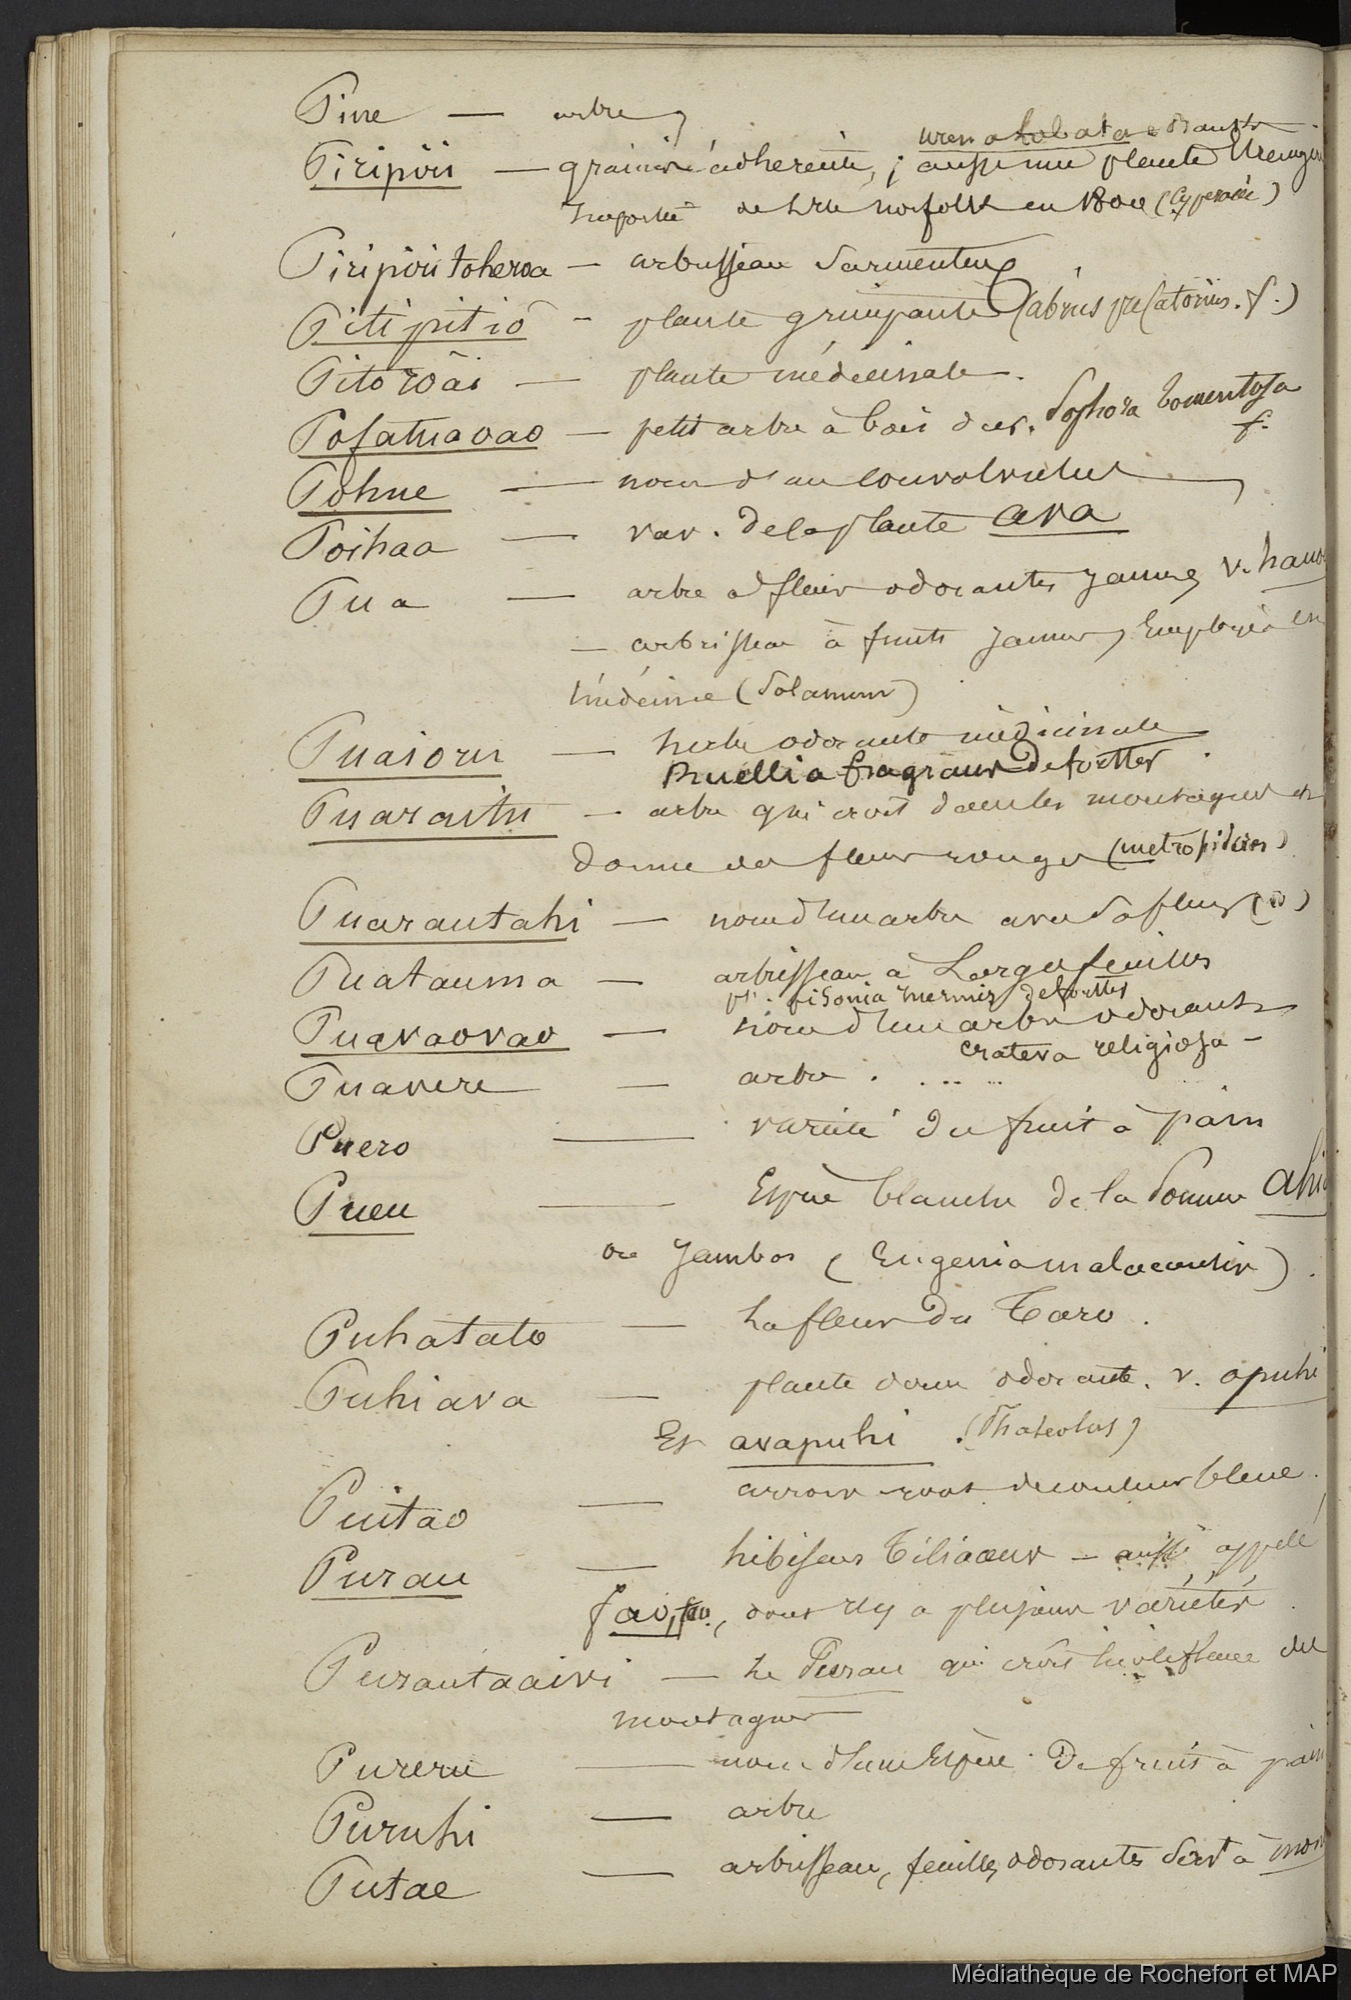 Pine — arbre
urena lobata
Piripiri — graine adherente, ; aussi une plante
importée de l'ile norfolk en 1800 (Cyperacée)
Piripiri toheroa — arbrisseau sarmenteux
Pitipitio — plante grimpante (abrus precatorius. f.)
Pitoroai — plante médecinale.
Pofatuaoao — petit arbre à bois dur. Sophora tomentosa
f.
Pohue — nom d'un convolvulus
Poihaa — var. de la plante ava
Pua — arbre à fleurs odorantes jaunes v.
— arbrisseau à fruits jaunes, Employé en
médecine (Solanum)
Puaioru — herbe odorante médicinale
Ruellia fragrans de forster
Puaraitu — arbre qui croit dans les montagnes et
donne des fleurs rouges (metrosideros)
Puarautahi — nom d'un arbre avec sa fleur (id)
Puatauma — arbrisseau à Larges feuilles
pisonia inermis de forster
Puavaovao — nom d'un arbre odorant
crateva religiosa —
Puavere — arbre . . ... ...
Puero — varieté du fruit à pain
Pueu — Espèce blanche de la Pomme
ou Jambos (Eugenia malaccensis).
Puhatato — La fleur du Taro.
Puhiava — plante odorante. v. opuhi
Et avapuhi. (Phaseolus)
Puitao — arrow root de couleur bleue.
Purau — hibiscus Tiliaceus — aussi appelé
, dont il y a plusieurs variétés.
Purautaaivi — Le Purau qui croit des
montagnes
Pureru — nom d'une Espèce de fruit à pain
Puruhi — arbre
Putae — arbrisseau, feuilles odorantes sert à
Médiathèque de Rochefort et MAP